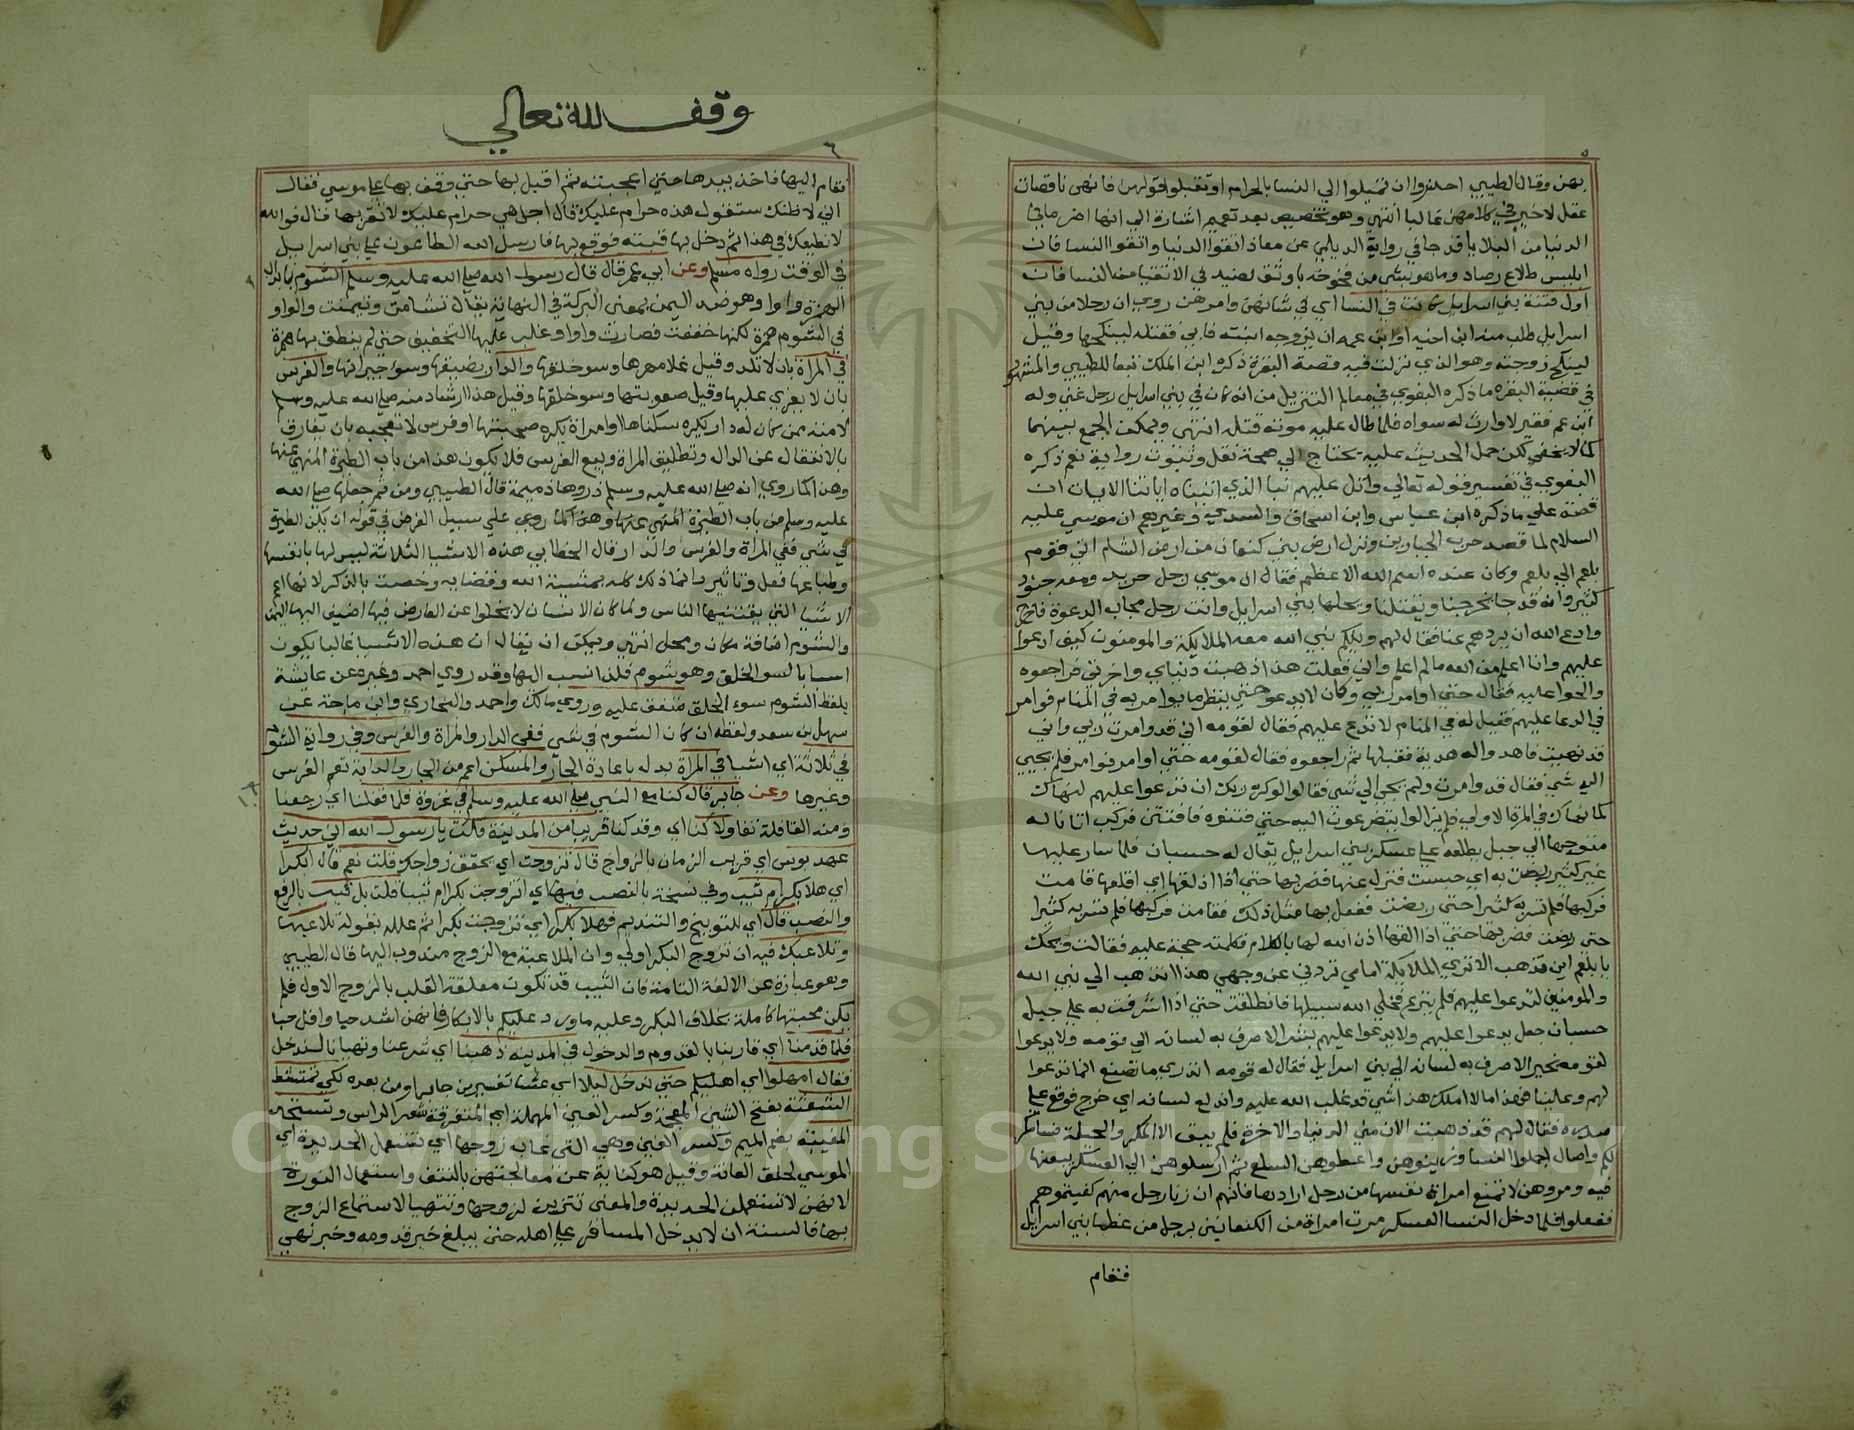 ٥
بهن وقال الطيبي احذروا ان تميلوا الي النسا بالحرام او تقبلوا قولهن فانهن ناقصات
عقل لا خير في كلامهن غالبا انتهى وهو تخصيص بعد تعميم اشارة الي انها اضر ما في
الدنيا من البلايا قد جا في رواية الديلمي عن معاذ اتقوا الدنيا واتقوا النسا فان
ابليس طلاع رصاد وما هو بشي من فخوخه باوثق لصيد في الاتقيا من النسا فان
اول فتنة بني اسرايل كانت في النسا اي في شانهن وامرهن روي ان رجلا من بني
اسرايل طلب منه ابن اخيه او ابن عمه ان يزوجه ابنته فابي فقتله لينكحها وقيل
لينكح زوجته وهو الذي نزلت فيه قصة البقرة ذكره ابن الملك تبعا للطيبي والمشهور
في قضية البقره ما ذكره البغوي في معالم التنزيل من انه كان في بني اسرايل رجل غني وله
ابن عم فقير لا وارث له سواه فلما طال عليه موته قتله انتهى ويمكن الجمع بينهما
كما لا يخفي لكن حمل الحديث عليه يحتاج الي صحة نقل وثبوت رواية نعم ذكره
البغوي في تفسير قوله تعالي واتل عليهم نبا الذي اتيناه اياتنا الايات ان
قصته علي ما ذكره ابن عباس وابن اسحاق والسدي وغيرهم ان موسي عليه
السلام لما قصد حرب الجبارين ونزل ارض بني كنعان من ارض الشام اتي قوم
بلعم الي بلعم وكان عنده اسم الله الاعظم فقال ان موسي رجل حديد ومعه جنود
كثير وانه قد جا يخرجنا ويقتلنا ويحلها بني اسرايل وانت رجل مجاب الدعوة فاخرج
وادع الله ان يردهم عنا فقال لهم ويلكم نبي الله معه الملايكة والمومنون كيف ادعوا
عليهم وانا اعلم من الله ما لم اعلم واني فعلت هذا ذهبت دنياي واخرتي فراجعوه
والحوا عليه فقال حتي اوامر ربي وكان لا يدعو حتي ينظر ما يوامر به في المنام فوامر
في الدعا عليهم فقيل له في المنام لا تدع عليهم فقال لقومه اني قد وامرت ربي واني
قد نهيت فاهدوا له هدية فقبلها ثم راجعوه فقال لقومه حتي اوامر فوامر فلم يجي
اليه شي فقال قد وامرت ولم يجي الي شي فقالوا لو كره ربك ان تدعوا عليهم لنهاك
كما نهاك في المرة الاولي فلم يزالوا يتضرعون اليه حتي فتنوه فافتتن فركب اتانا له
متوجها الي جبل يطلعه علي عسكر بني اسرايل يقال له حسبان فلما سار عليها
غير كثير ربضت به اي حبست فنزل عنها فضربها حتي اذا اذلقها اي اقلعها قامت
فركبها فلم تسر به كثيرا حتي ربضت ففعل بها مثل ذلك فقامت فركبها فلم تسر به كثيرا
حتي ربضت فضربها حتي اذا القها اذن الله لها بالكلام فكلمته حجة عليه فقالت ويحك
يا بلعم اين تذهب الا تري الملايكة امامي تردني عن وجهي هذا اتذهب الي نبي الله
والمومنين لتدعوا عليهم فلم ينزع فخلي الله سبيلها فانطلقت حتي اذا اشرفت به علي جبل
حسبان جعل يدعوا عليهم ولا يدعوا عليهم بشر الا صرف به لسانه الي قومه ولا يدعوا
لقومه بخير الا صرف به لسانه الي بني اسرايل فقال له قومه اتدري ما تصنع انما تدعوا
لهم وعلينا فهذا ما لا املك هذا شي قد غلب الله عليه واندلع لسانه اي خرج فوقع علي
صدره فقال لهم قد ذهبت الان مني الدنيا والاخرة فلم يبق الا المكر والحيلة فسامكر
لكم واحتال اجملوا النسا وزينوهن واعطوهن السلع ثم ارسلوهن الي العسكر يبعنها
فيه ومروهن لا تمنع امراة نفسها من رجل ارادها فانهم ان زنا رجل منهم كفيتموهم
ففعلوا فلما دخل النسا العسكر مرت امراة من الكنعانيين برجل من عظما بني اسرايل
فقام
وقف لله تعالي
٦
فقام اليها فاخذ بيدها حتي اعجبته ثم اقبل بها حتي وقف بها علي موسي فقال
اني لاظنك ستقول هذه حرام عليك قال اجل هي حرام عليك لا تقربها قال فوالله
لا نطيعك في هذا ثم دخل بها قبته فوقع بها فارسل الله الطاعون علي بني اسرايل
في الوقت رواه مسلم وعن ابن عمر قال قال رسول الله صلي الله عليه وسلم الشوم بابدال
الهمزة واوا وهو ضد اليمن بمعني البركة في النهاية يقال تشامت وتيمنت والواو
في الشوم همزة لكنها خففت فصارت واوا وغلب عليها التخفيف حتي لم ينطق بها همزة
في المراة بان لا تلد وقيل غلا مهرها وسو خلقها والدار بضيقها وسو جيرانها والفرس
بان لا يغزي عليها وقيل صعوبتها وسو خلقها وقيل هذا ارشاد منه صلي الله عليه وسلم
لامته من كان له دار يكره سكناها او امراة يكره صحبتها او فرس لا تعجبه بان يفارق
بالانتقال عن الدار وتطليق المراة وبيع الفرس فلا يكون هذا من باب الطيرة المنهي عنها
وهذا كما روي انه صلي الله عليه وسلم ذروها ذميمة قال الطيبي ومن ثم جعلها صلي الله
عليه وسلم من باب الطيرة المنهي عنها وهذا كما روي علي سبيل الفرض في قوله ان يكن الطيرة
في شي ففي المراة والفرس والدار قال الخطابي هذه الاشيا الثلاثة ليس لها بانفسها
وطباعها فعل وتاثير وانما ذلك كله بمشيية الله وقضايه وخصت بالذكر لانها اعم
الاشيا التي يقتنيها الناس ولما كان الانسان لا يخلوا عن العارض فيها اضيف اليها اليمن
والشوم اضافة مكان ومحل انتهى ويمكن ان يقال ان هذه الاشيا غالبا يكون
اسبابا لسو الخلق وهو شوم فلذا نسب اليها وقد روي احمد وغيره عن عايشة
بلفظ الشوم سوء الخلق متفق عليه وروي مالك واحمد والبخاري وابن ماجة عن
سهل بن سعد ولفظه ان كان الشوم في شي ففي الدار والمراة والفرس وفي رواية الشوم
في ثلاثة اي اشيا في المراة بدله باعادة الجار والمسكن اعم من الجار والدابة تعم الفرس
وغيرها وعن جابر قال كنا مع النبي صلي الله عليه وسلم في غزوة فلما قفلنا اي رجعنا
ومنه القافلة تفاولا كنا اي وقد كنا قريبا من المدينة قلت يا رسول الله اني حديث
عهد بعرس اي قريب الزمان بالزواج قال تزوجت اي يحقق زواجك قلت نعم قال ابكرا
اي هلا بكر ام ثيب وفي نسخة بالنصب فيهما اي اتزوجت بكرا ام ثيبا قلت بل ثيب بالرفع
والنصب قال اي للتوبيخ والتنديم فهلا بكرا اي تزوجت بكرا ثم علله بقوله تلاعبها
وتلاعبك فيه ان تزوج البكر اولي وان الملاعبة مع الزوج مندوب اليها قال الطيبي
وهو عبارة عن الالفة التامة فان الثيب قد تكون معلقة القلب بالزوج الاول فلم
يكن محبتها كاملة بخلاف البكر وعليه ما ورد عليكم بالابكار فانهن اشد حبا واقل خبا
فلما قدمنا اي قاربنا بالقدوم والدخول في المدينة ذهبنا اي شرعنا وتهيانا لندخل
فقال امهلوا اي اهليكم حتي ندخل ليلا اي عشا تفسير من جابر او من بعده لكي تمتشط
الشعثة بفتح الشين المعجمة وكسر العين المهملة اي المتفرقة شعر الراس وتستحد
المغيبة بضم الميم وكسر الغين وهي التي غاب زوجها اي تستعمل الحديدة اي
الموسي لحلق العانة وقيل هو كناية عن معالجتهن بالنتف واستعمال النورة
لانهن لا تستعملن الحديدة والمعني تتزين لزوجها وتتهيا لاستمتاع الزوج
بها فالسنة ان لا يدخل المسافر علي اهله حتي يبلغ خبر قدومه وخبر نهي
Copyright © King Saud University